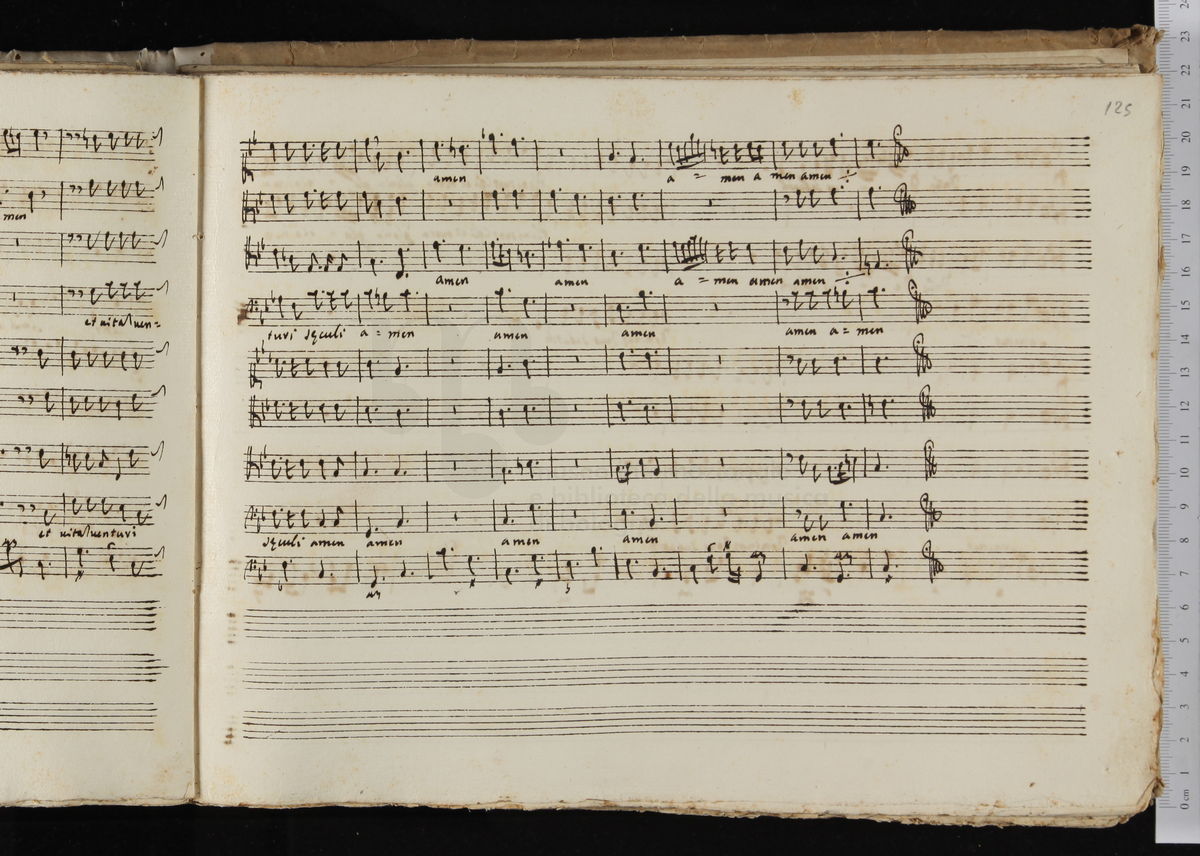 125
amen a = men a men amen
men
amen amen a = men amen amen
et vita ven=
turi sęculi a = men amen amen amen a = men
et vita venturi
sęculi amen amen amen amen amen amen
24
23
22
21
20
19
18
17
16
15
14
13
12
11
10
9
8
7
6
5
4
3
2
1
0 cm